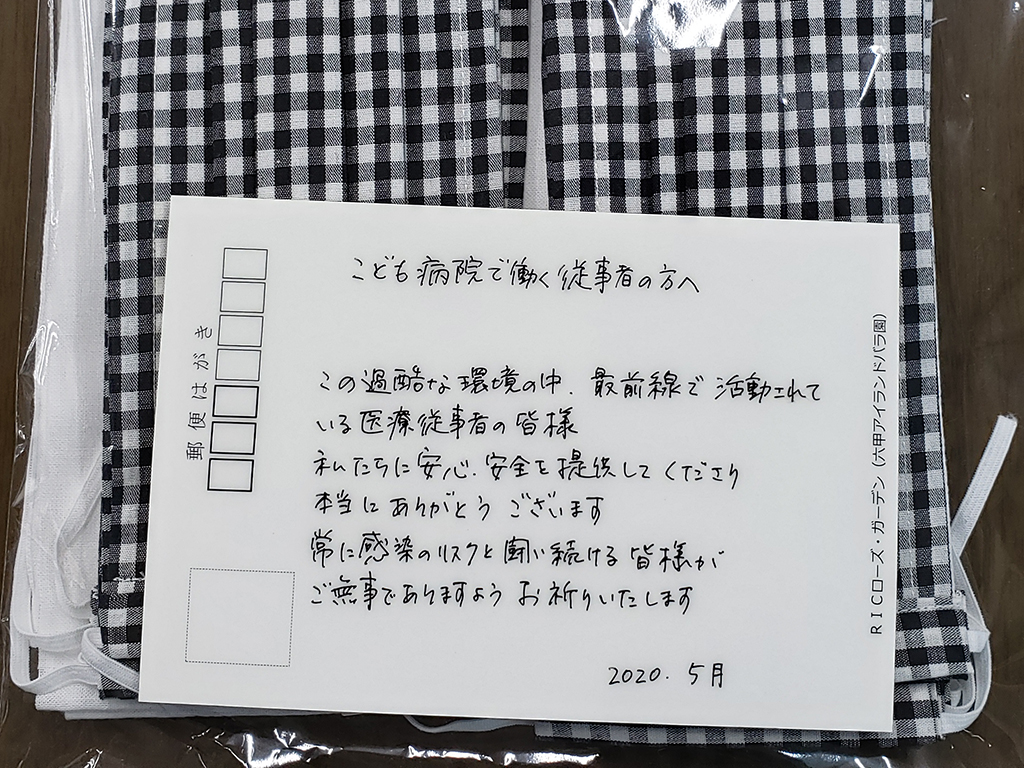 郵便はがき
こども病院で働く従事者の方へ
この過酷な環境の中、最前線で活動されて
いる医療従事者の皆様
私たちに安心、安全を提供してくださり
本当にありがとうございます
常に感染のリスクと闘い続ける皆様が
ご無事でありますようお祈りいたします
2020.5月
RICローズ・ガーデン(六甲アイランドバラ園)